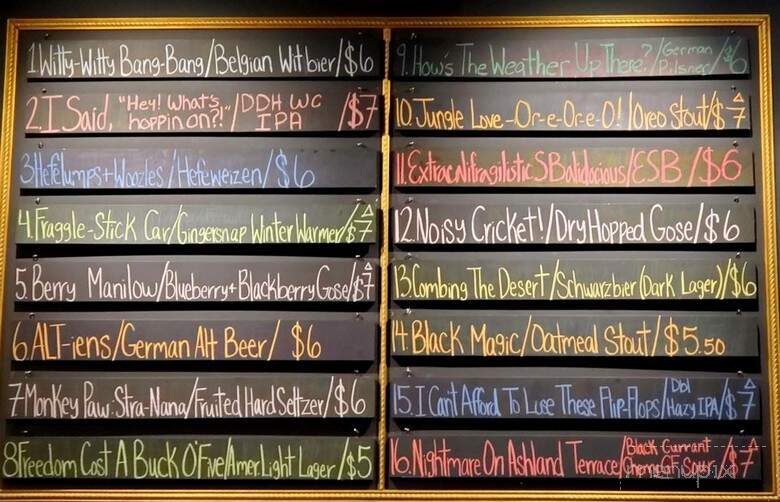 1 Witty-Witty Bang-Bang/Belgian Witbier/$6
2. I Said, "Hey! What's hoppin on?!"/DDH WC IPA /$7
3 Hefelumps + Woozles /Hefeweizen/ $6
4. Fraggle-Stick Car/Gingersnap Winter Warmer/$7
5. Berry Manilow/Blueberry + Blackberry Gose/$7
6 ALT-iens/German Alt Beer/ $6
7 Monkey Paw: Stra-Nana/Fruited Hard Seltzer/$6
8 Freedom Cost A Buck O' Five/Amer. Light Lager/$5
9. How's The Weather Up There?/German Pilsner/$6
10. Jungle Love-Or-e-Or-e-O! /Oreo Stout/$7
11. ExtracNifragilistic SBalidocious/ESB/$6
12. Noisy Cricket!/Dry Hopped Gose/$6
13. Combing The Desert/Schwarzbier (Dark Lager)/$6
14 Black Magic/Oatmeal Stout/$5.50
15. I Can't Afford To Lose These Flip-Flops/Dbl Hazy IPA/$7
16. Nightmare On Ashland Terrace/Black Currant /$7
menupix